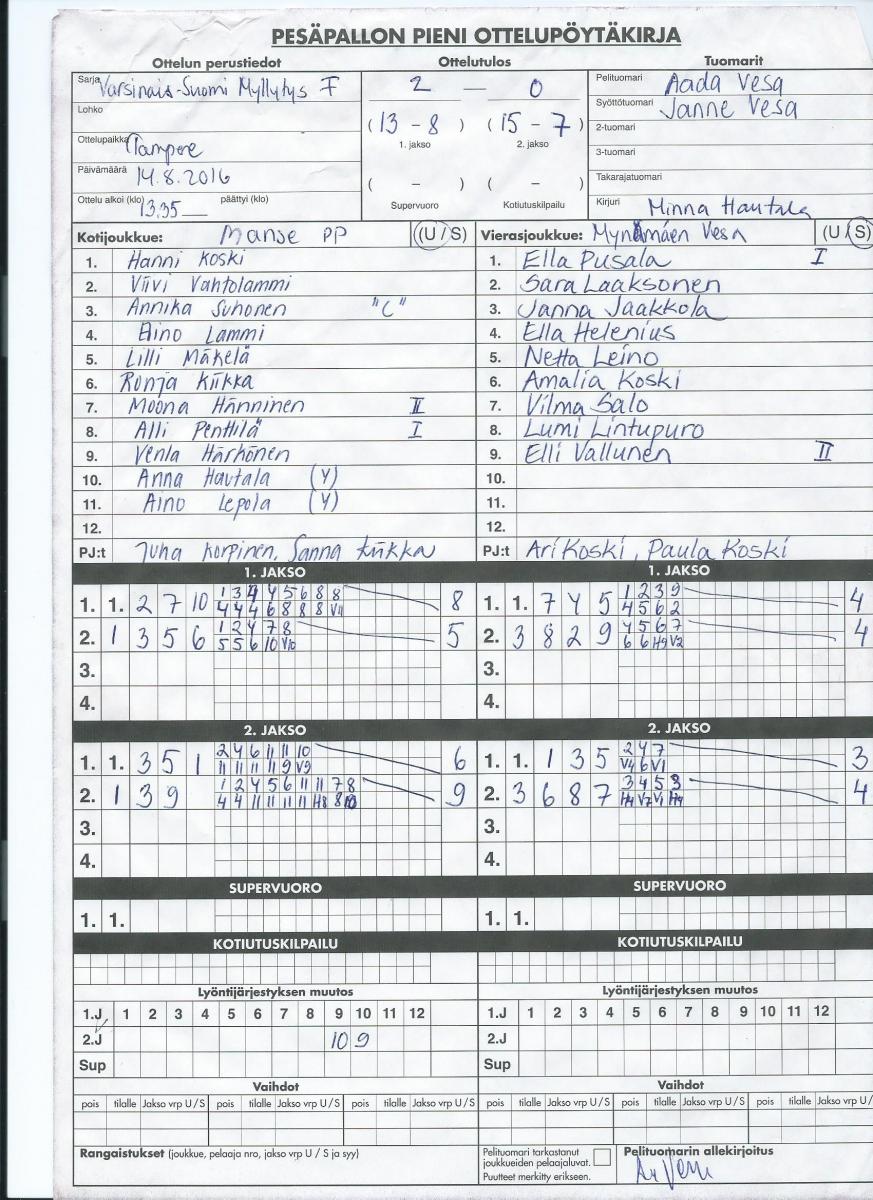 PESÄPALLON PIENI OTTELUPÖYTÄKIRJA
Ottelun perustiedot Ottelutulos Tuomarit
Sarja Varsinais-Suomi Myllytys F
Lohko
Ottelupaikka Tampere
Päivämäärä 14.8.2016
Ottelu alkoi (klo) 13.35 päättyi (klo)
2 — 0
(13 - 8) (15 - 7)
1. jakso 2. jakso
( - ) ( - )
Supervuoro Kotiutuskilpailu
Pelituomari Aada Vesa
Syöttötuomari Janne Vesa
2-tuomari
3-tuomari
Takarajatuomari
Kirjuri Minna Hautala
Kotijoukkue: Manse PP (U / S)
1. Hanni Koski
2. Viivi Vahtolammi
3. Annika Suhonen "C"
4. Aino Lammi
5. Lilli Mäkelä
6. Ronja Kiikka
7. Moona Hänninen II
8. Alli Penttilä I
9. Venla Härhönen
10. Anna Hautala (Y)
11. Aino Lepola (Y)
12.
PJ:t Juha Korpinen, Sanna Kiikka
Vierasjoukkue: Mynämäen Vesa (U / S)
1. Ella Pusala I
2. Sara Laaksonen
3. Janna Jaakkola
4. Ella Helenius
5. Netta Leino
6. Amalia Koski
7. Vilma Salo
8. Lumi Lintupuro
9. Elli Vallunen II
10.
11.
12.
PJ:t Ari Koski, Paula Koski
1. JAKSO
1. 1. 2 7 10 1 3 4 4 5 6 8 8 8
4 4 4 6 8 8 8 V11
2. 1 3 5 6 1 2 4 7 8 5
5 5 6 10 V10
3.
4.
1. JAKSO
1. 1. 7 4 5 1 2 3 9 4
4 5 6 2
2. 3 8 2 9 4 5 6 7 4
6 6 H9 V2
3.
4.
2. JAKSO
1. 1. 3 5 1 2 4 6 11 11 10 6
11 11 11 11 9 V9
2. 1 3 9 1 2 4 5 6 11 11 7 8 9
4 4 11 11 11 11 H8 8 10
3.
4.
2. JAKSO
1. 1. 1 3 5 2 4 7 3
V4 6 V1
2. 3 6 8 7 3 4 5 3 4
H4 V7 V1 H4
3.
4.
SUPERVUORO SUPERVUORO
1. 1. 1. 1.
KOTIUTUSKILPAILU KOTIUTUSKILPAILU
Lyöntijärjestyksen muutos Lyöntijärjestyksen muutos
1.J 1 2 3 4 5 6 7 8 9 10 11 12 1.J 1 2 3 4 5 6 7 8 9 10 11 12
2.J 10 9 2.J
Sup Sup
Vaihdot Vaihdot
pois tilalle Jakso vrp U / S pois tilalle Jakso vrp U / S pois tilalle Jakso vrp U / S pois tilalle Jakso vrp U / S pois tilalle Jakso vrp U / S pois tilalle Jakso vrp U /
Rangaistukset (joukkue, pelaaja nro, jakso vrp U / S ja syy)
Pelituomari tarkastanut
joukkueiden pelaajaluvat.
Puutteet merkitty erikseen.
Pelituomarin allekirjoitus